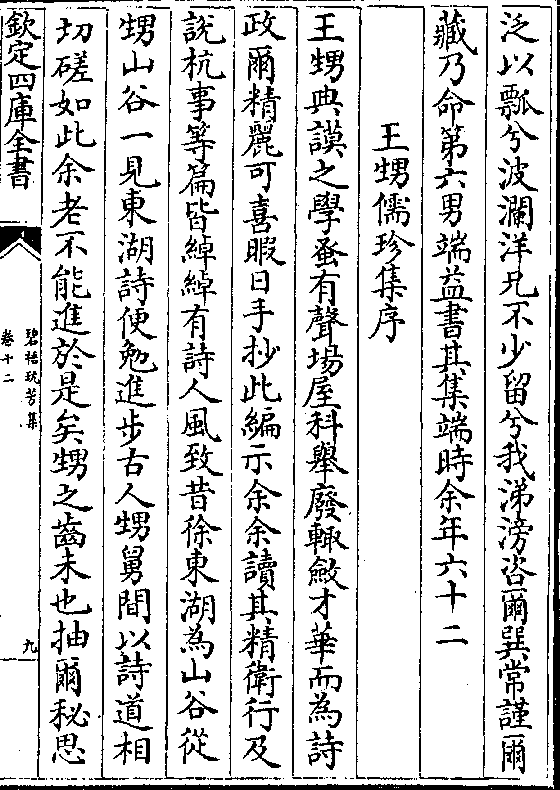 泛以瓢兮波瀾洋兄不少留兮我涕滂咨爾巽常謹爾
藏乃命第六男端益書其集端時余年六十二
王甥儒珍集序
王甥典謨之學蚤有聲場屋科舉廢輙斂才華而為詩
政爾精麗可喜暇日手抄此編示余余讀其精衛行及
說杭事等篇皆綽綽有詩人風致昔徐東湖為山谷從
甥山谷一見東湖詩便勉進步古人甥舅間以詩道相
切磋如此余老不能進於是矣甥之齒未也抽爾秘思
欽定四庫全書
碧梧玩芳集
卷十二
九